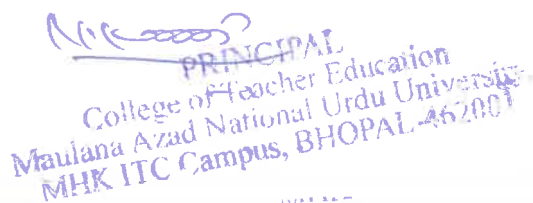 PRINCIPAL
College of Teacher Education
Maulana Azad National Urdu University
MHK ITC Campus, BHOPAL-462001